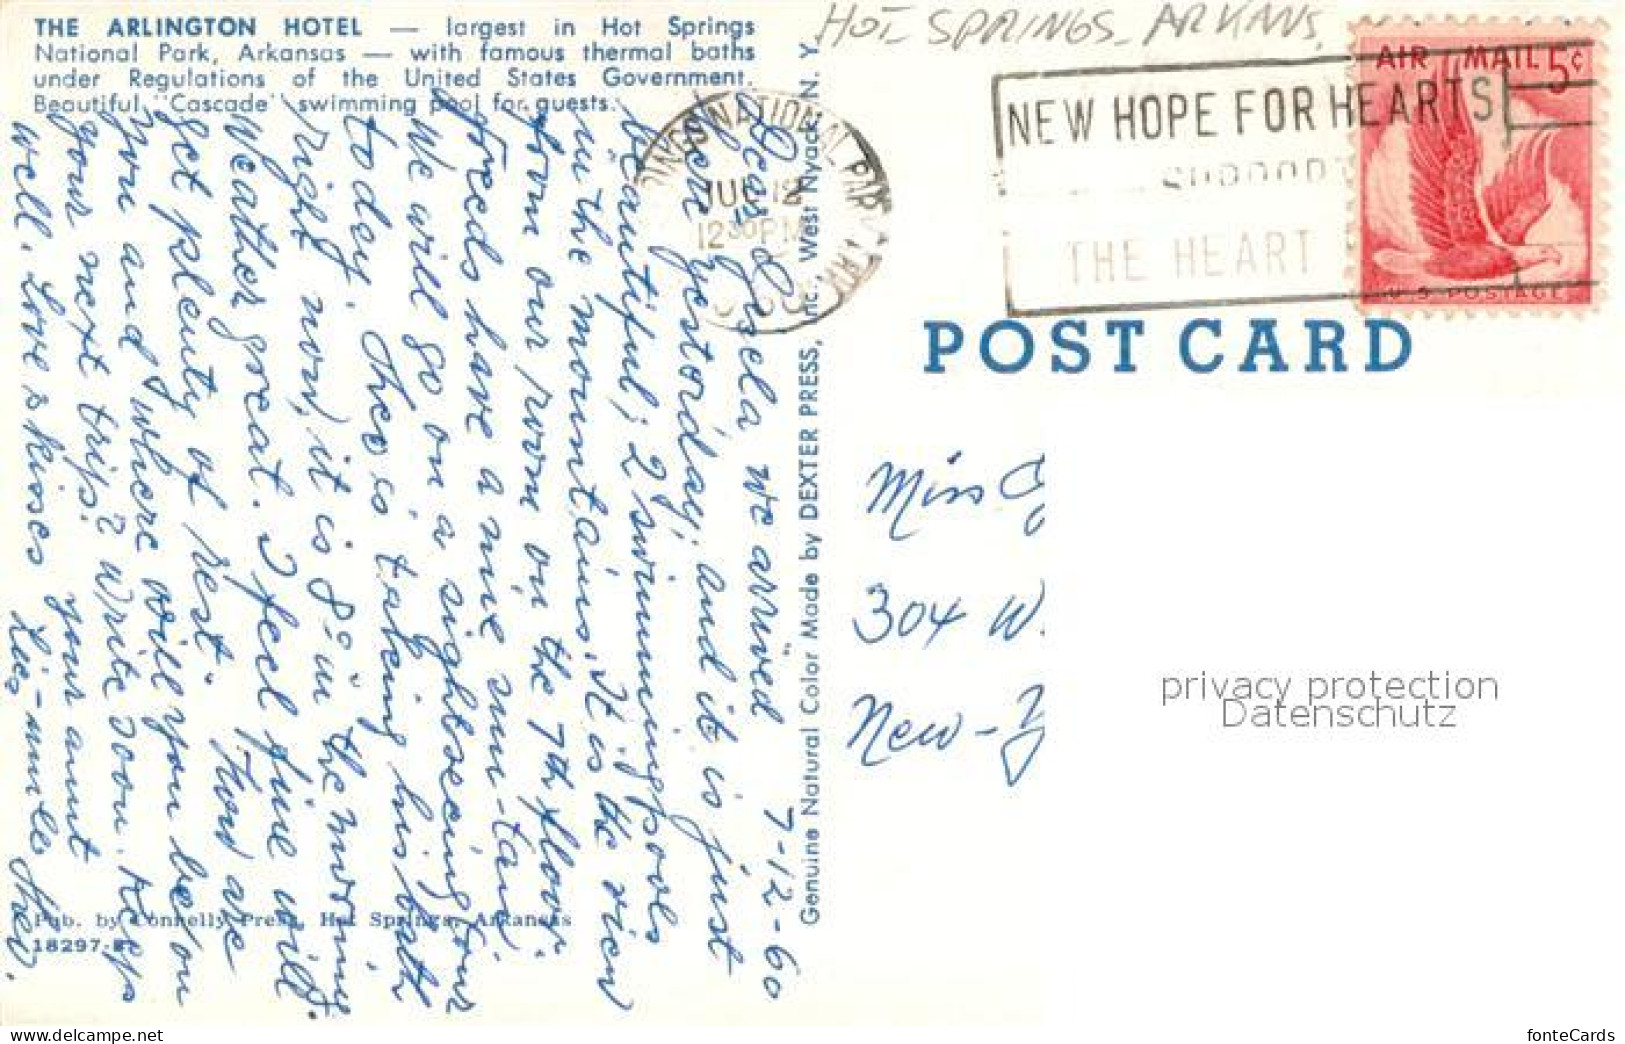 THE ARLINGTON HOTEL — largest in Hot Springs
National Park, Arkansas — with famous thermal baths
under Regulations of the United States Government.
Beautiful "Cascade" swimming pool for guests.
HOT SPRINGS - ARKANS.
NATIONAL PARK
JUL 12
12 30 PM
NEW HOPE FOR HEARTS
SUPPORT
THE HEART
AIR MAIL 5¢
U.S. POSTAGE
POST CARD
7-12-60
Dear Gisela we arrived
here yestorday, and it is just
beautiful; 2 swimmingpools
in the mountains. It is the view
from our room on the 7th floor.
freds have a nice sun-tan.
We will go on a sightseeing tour
today. Theo is taking his bath
right now, it is 8° in the morning
Weather great. I feel fine will
get plenty of rest. How are
you and where will you be on
your next trip? Write soon. Keep
well. Love & kisses your aunt
Theo.
Pub. by Connelly Press, Hot Springs, Arkansas
18297-B
Genuine Natural Color Made by DEXTER PRESS, Inc., West Nyack, N. Y.
Miss G
304 W.
New-Y
privacy protection
Datenschutz
www.delcampe.net
fonteCards